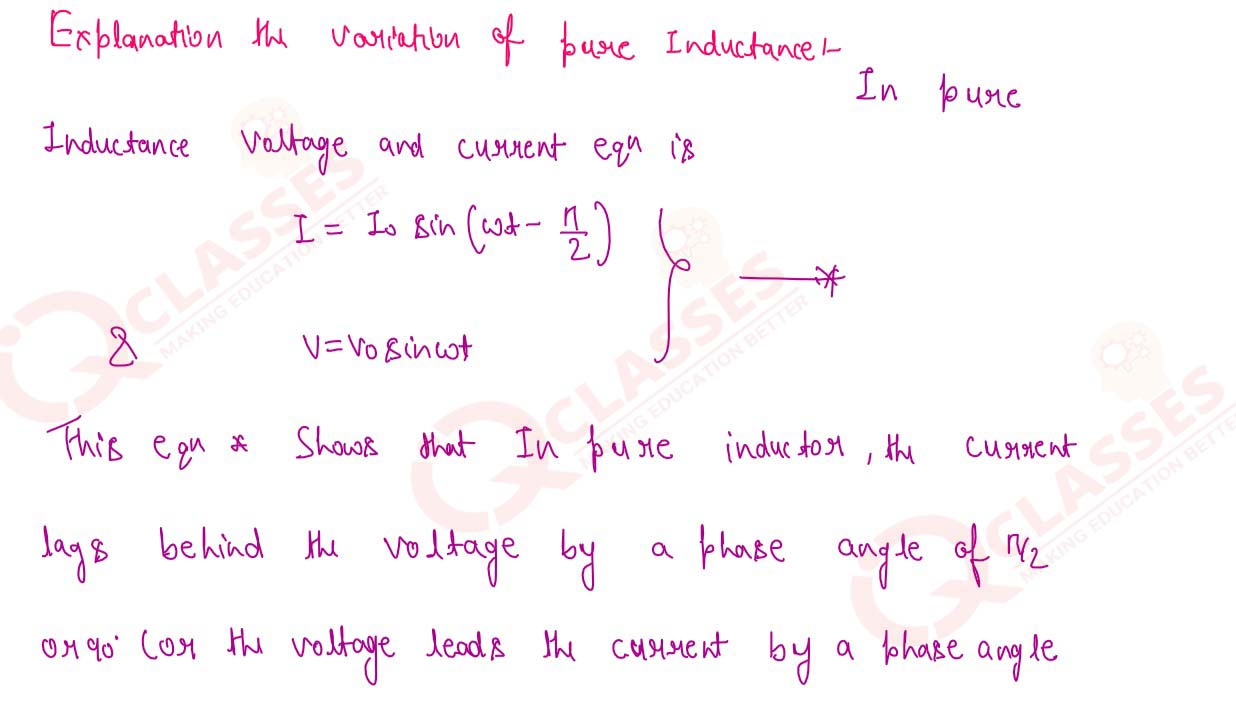 Explanation the variation of pure Inductance:-
In pure
Inductance Voltage and current eqn is
I = I₀ sin(ωt - π/2)
& V=V₀ sinωt
This eqn * Shows that In pure inductor, the current
lags behind the voltage by a phase angle of π/2
or 90° (or the voltage leads the current by a phase angle
IQ CLASSES
MAKING EDUCATION BETTER
IQ CLASSES
MAKING EDUCATION BETTER
IQ CLASSES
MAKING EDUCATION BETTER